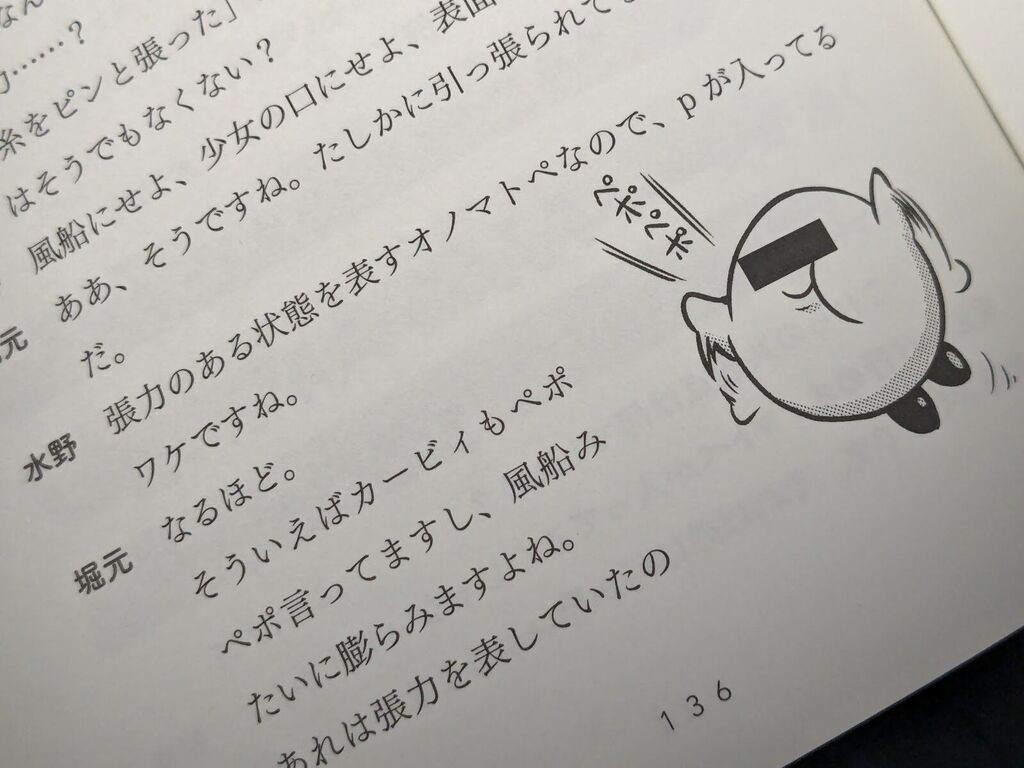 なん
……？
糸をピンと張った」
はそうでもなくない？
風船にせよ、少女の口にせよ、表面
ああ、そうですね。たしかに引っ張られて
だ。
水野 張力のある状態を表すオノマトペなので、pが入ってる
ワケですね。
堀元 なるほど。
そういえばカービィもペポ
ペポ言ってますし、風船み
たいに膨らみますよね。
あれは張力を表していたの
ペポペポ
136